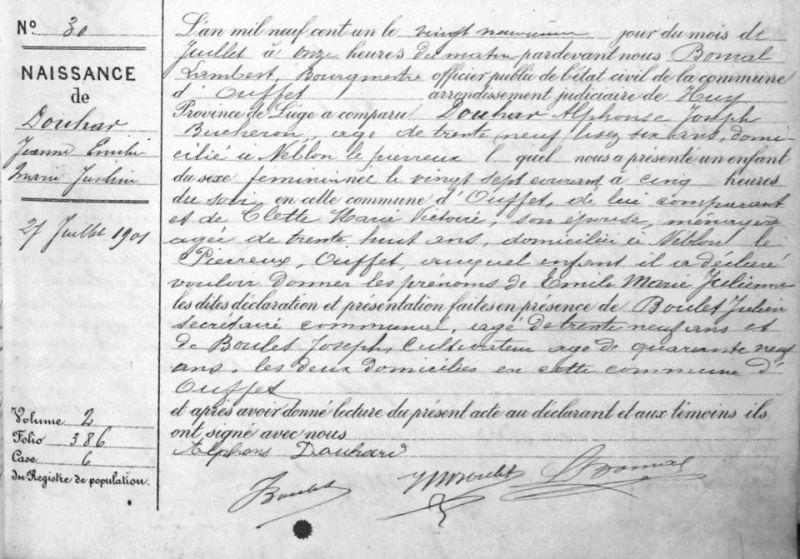 N° 30
NAISSANCE
de
Douhar
Jeanne Emilie
Marie Julien
27 Juillet 1901
Volume 2
Folio 386
Case 6
du Registre de population.
L'an mil neuf cent un le vingt neuvième jour du mois de
Juillet à onze heures du matin pardevant nous Bomal
Lambert, Bourgmestre officier public de l'état civil de la commune
d'Ouffet arrondissement judiciaire de Huy
Province de Liége a comparu Douhar Alphonse Joseph
Bucheron, age de trente neuf lisez six ans, domi
cilié à Neblon le pierreux lequel nous a présenté un enfant
du sexe feminin né le vingt sept courant à cinq heures
du soir en cette commune d'Ouffet, de lui comparant
et de Clette Marie Victoire, son épouse, ménagère
agée de trente huit ans, domiciliée à Neblon le
Pierreux, Ouffet, auquel enfant il a déclaré
vouloir donner les prénoms de Emilie Marie Julienne
les dites déclaration et présentation faites en présence de Boulet Julien
secrétaire communal, agé de trente neuf ans et
de Boulet Joseph, Cultivateur age de quarante neuf
ans, les deux domiciliés en cette commune d'
Ouffet
et après avoir donné lecture du présent acte au déclarant et aux témoins ils
ont signé avec nous
Alphons Douhard
JBoulet Boulet LBomal